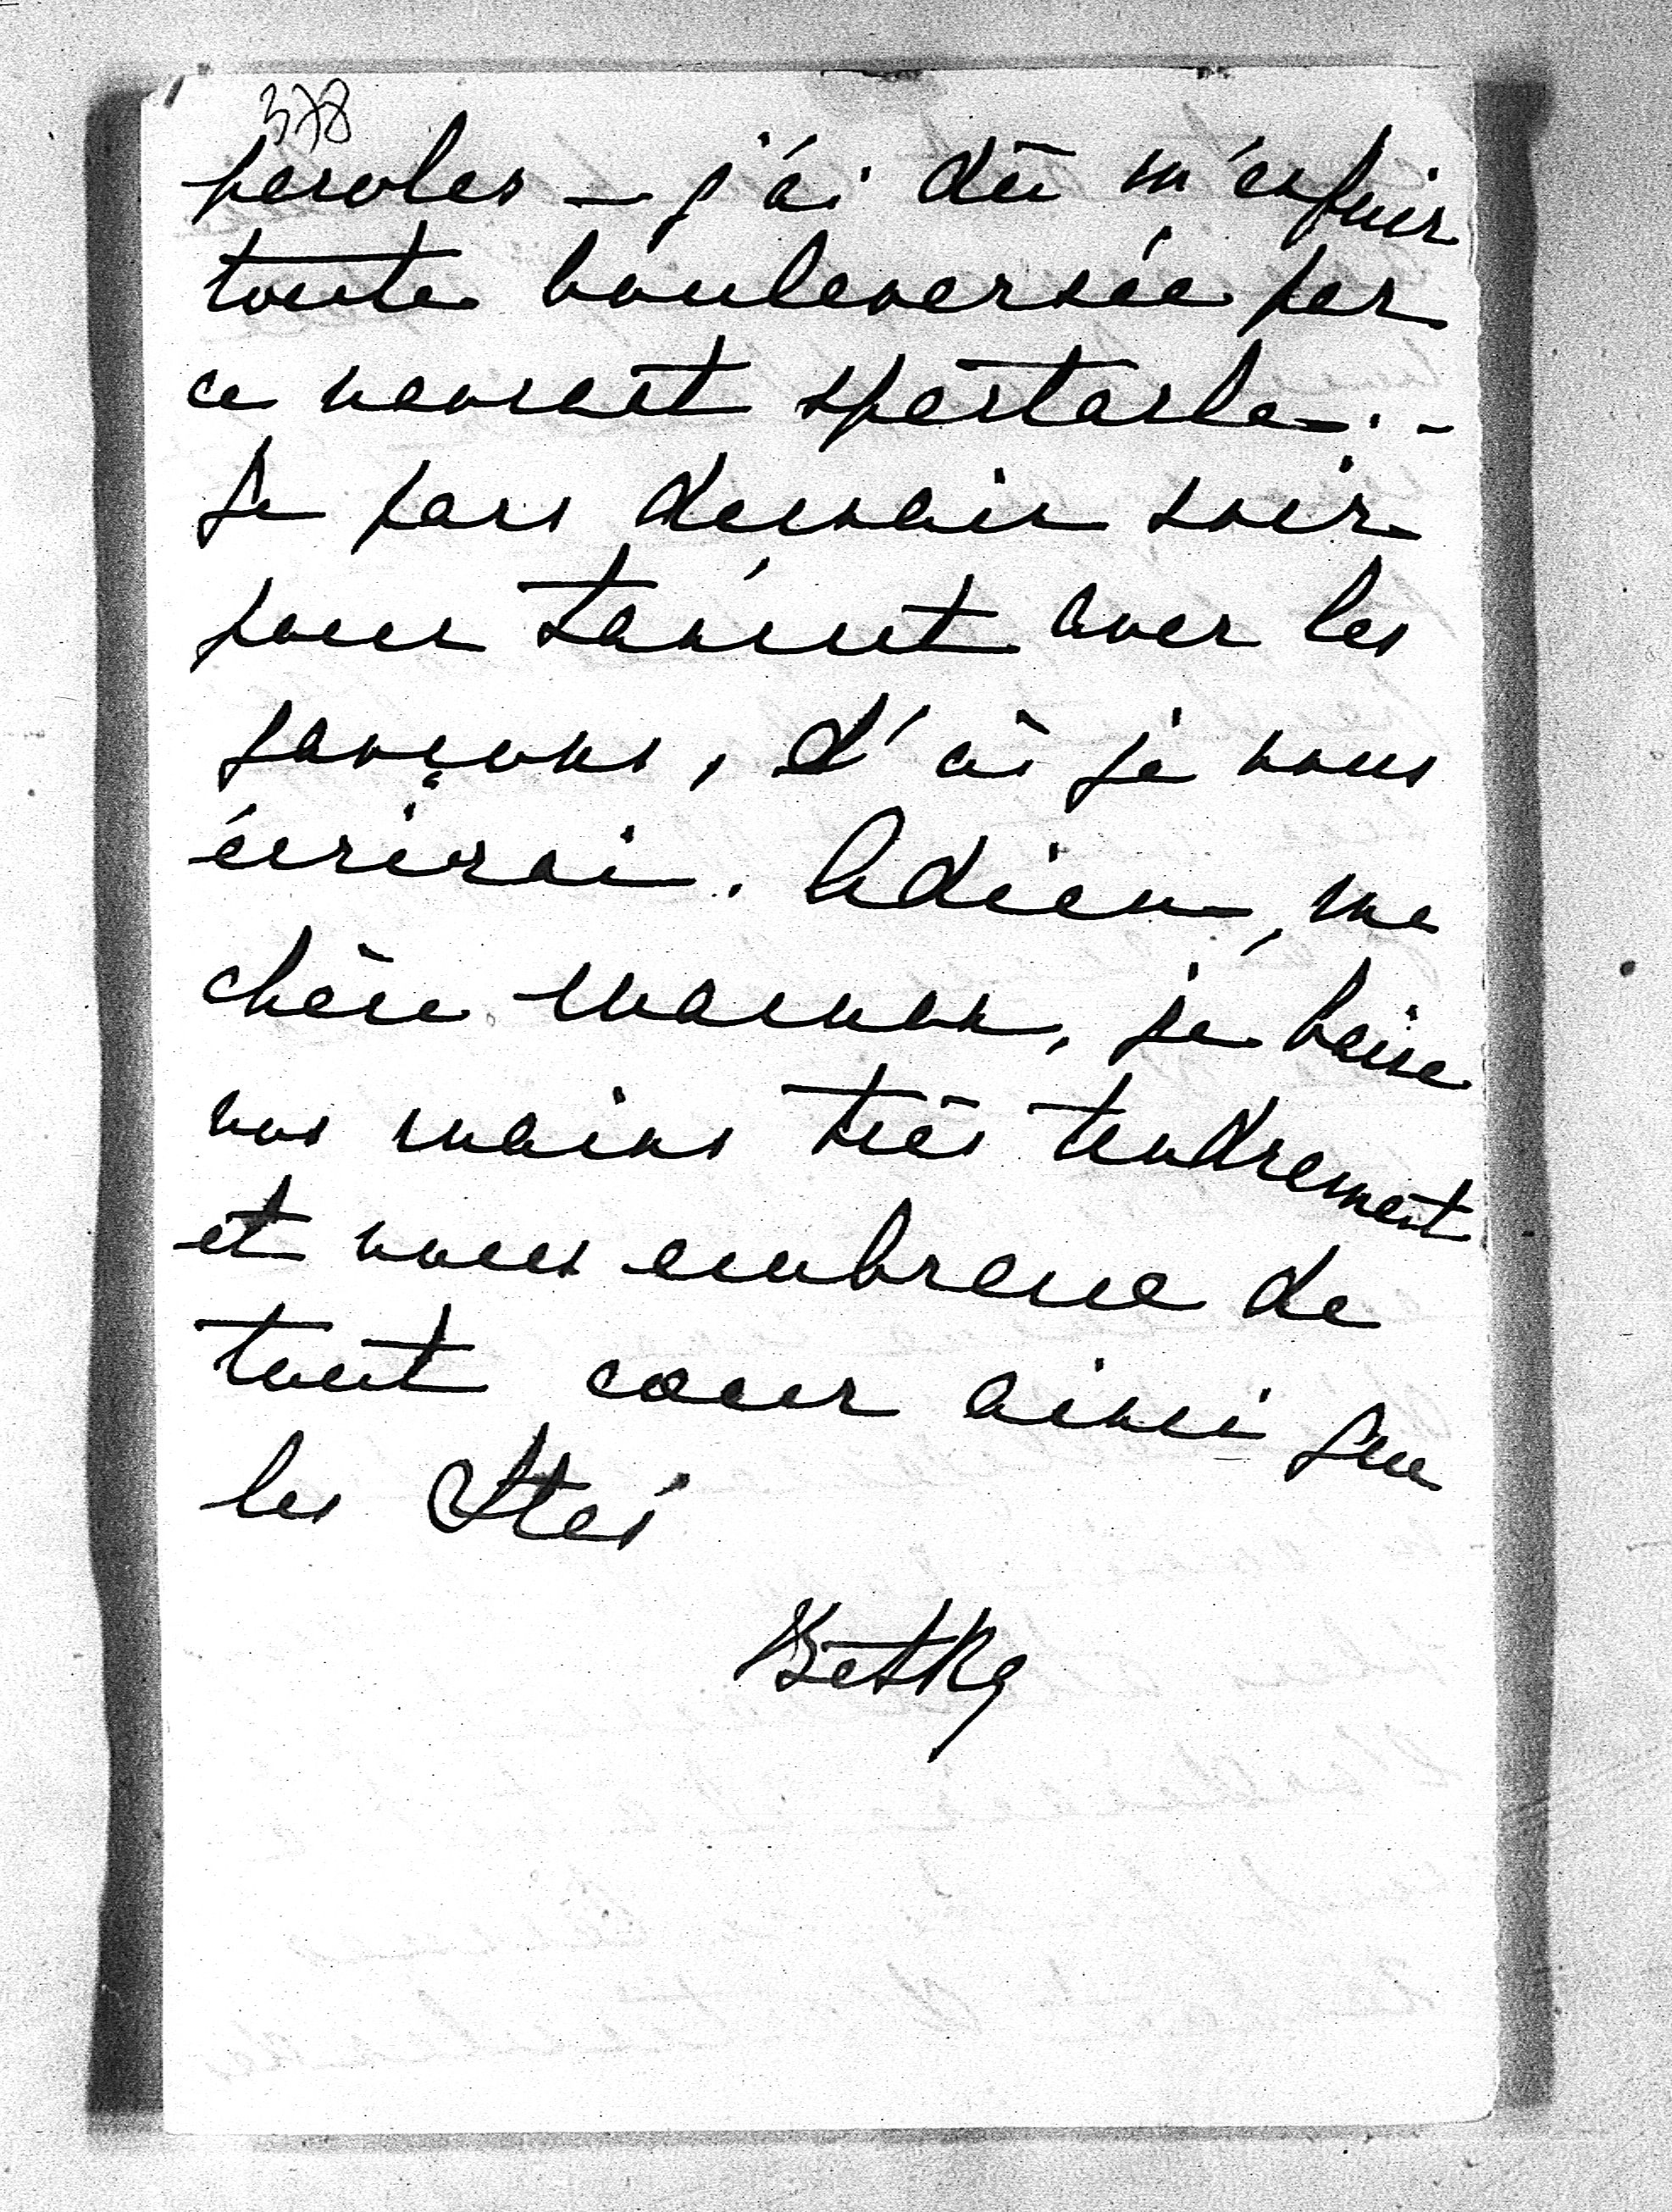 378
paroles — j'ai dû m'enfuir
toute bouleversée par
ce navrant spectacle. -
Je pars demain soir
pour Łańcut avec les
garçons, d'où je vous
écrirai. Adieu, ma
chère maman, je baise
vos mains très tendrement
et vous embrasse de
tout cœur ainsi que
les
Betka